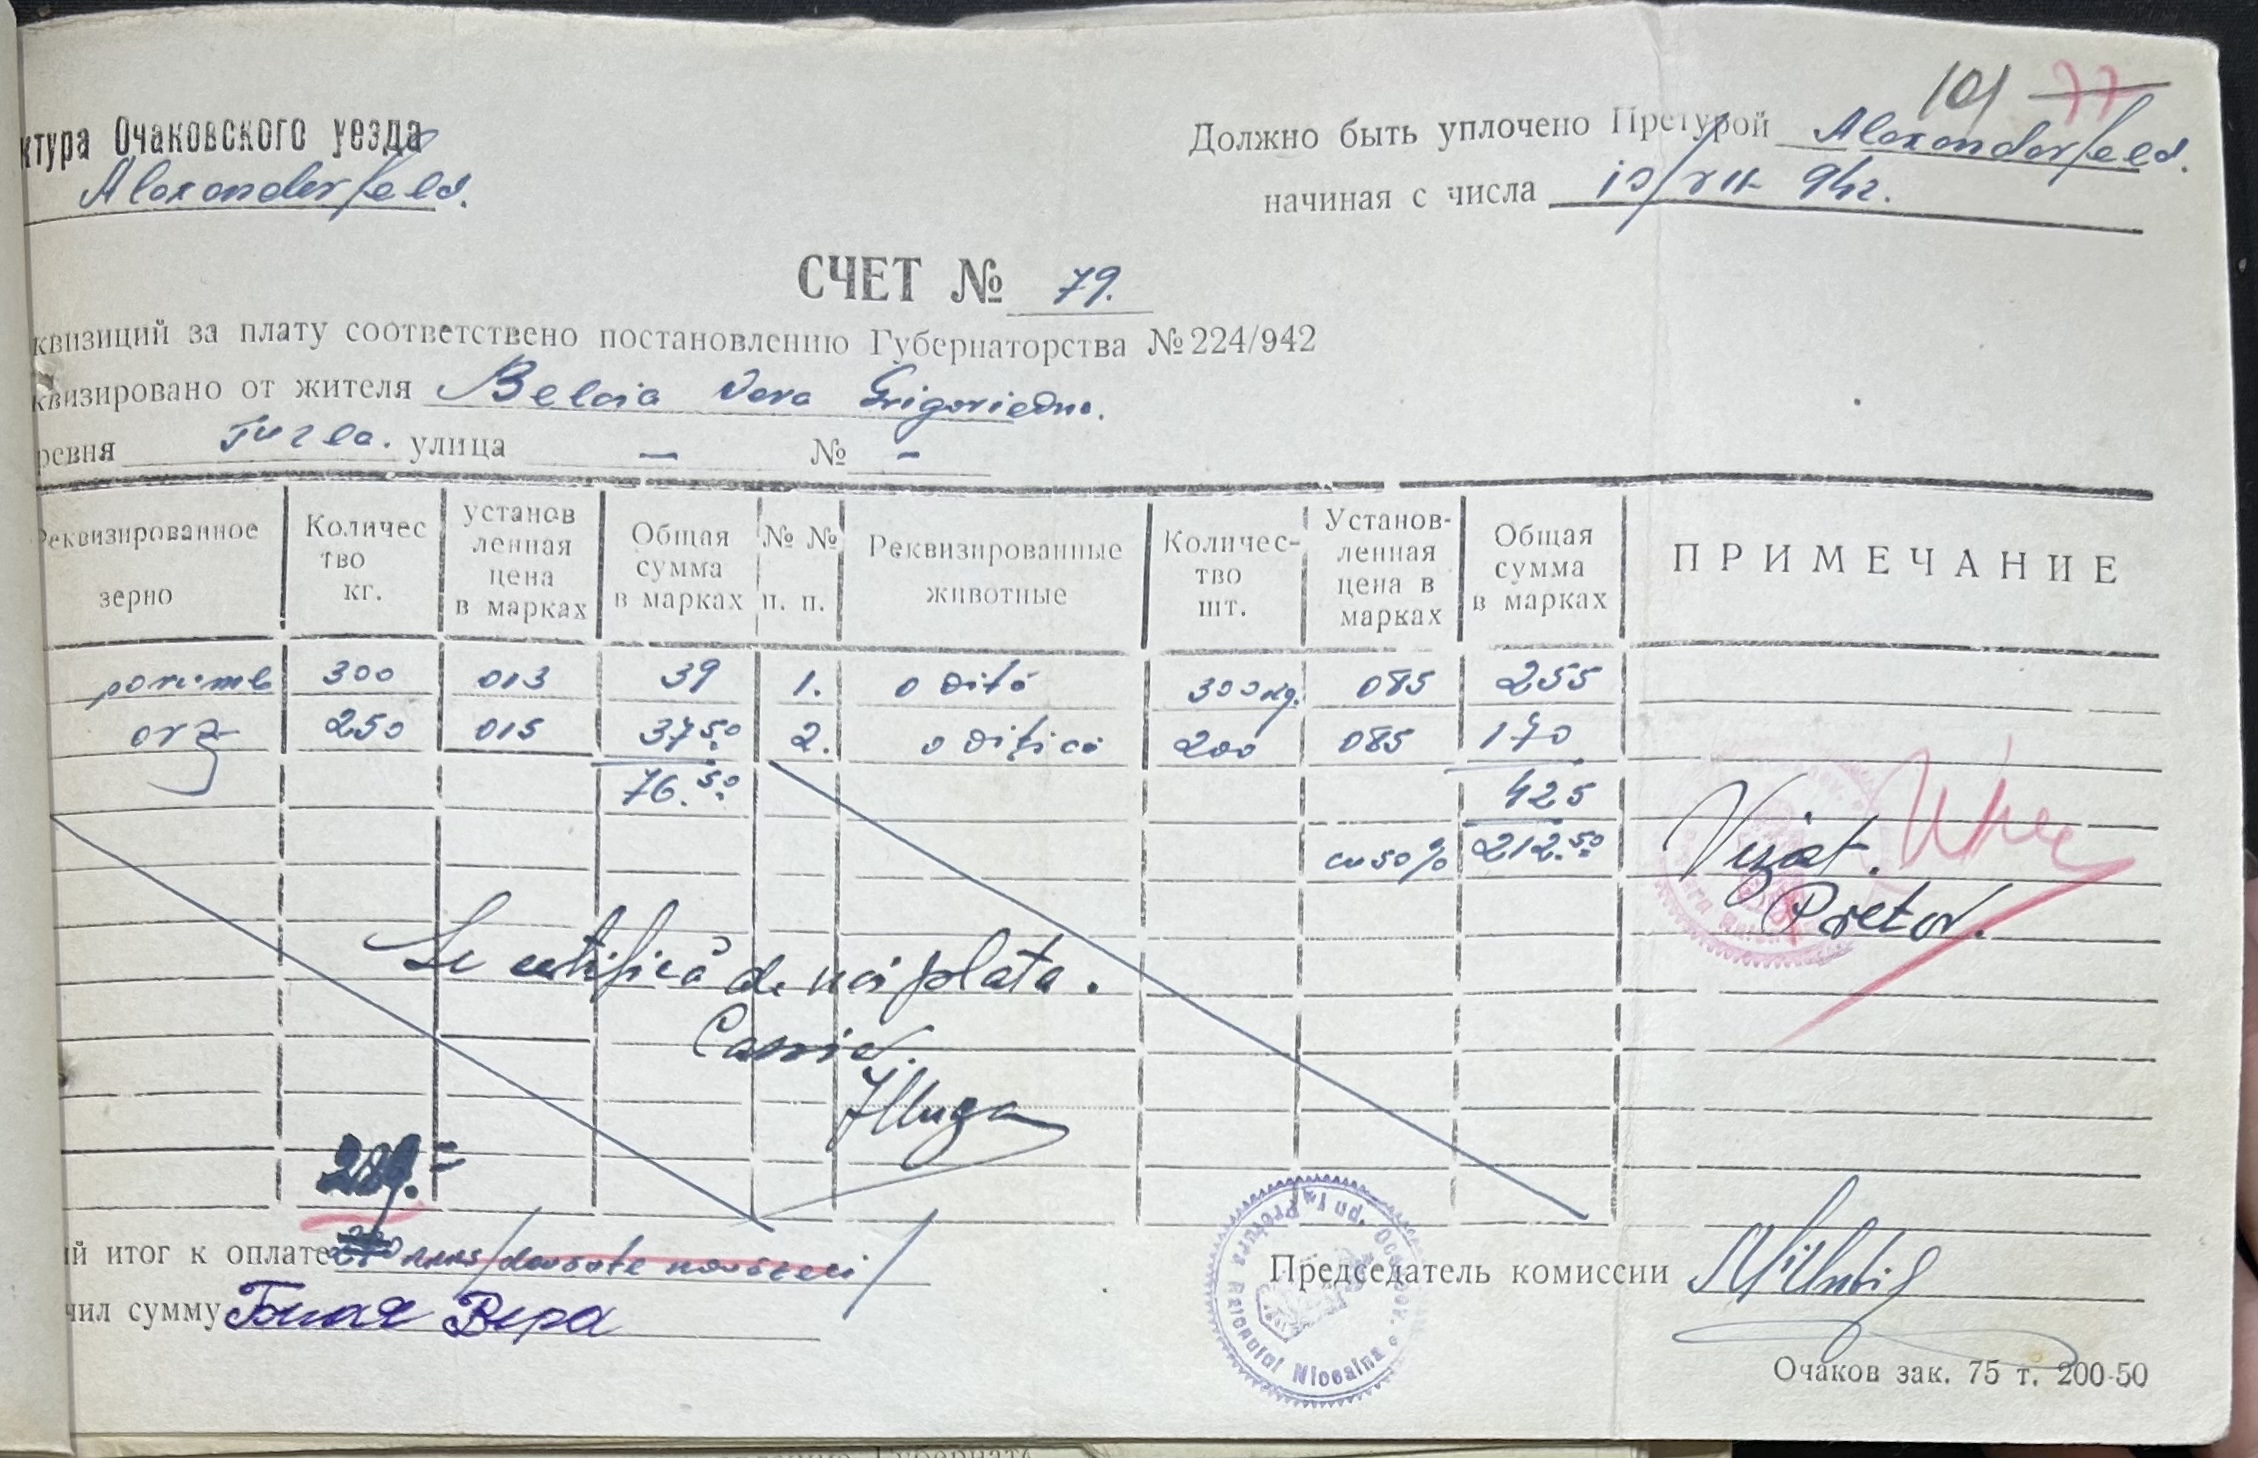 101 77
ктура Очаковского уезда
Alexanderfeld.
Должно быть уплочено Претурой Alexanderfeld.
начиная с числа 10/XII 942.
СЧЕТ № 79.
квизиций за плату соответствено постановлению Губернаторства № 224/942
квизировано от жителя Belaia Vera Grigorievna.
ревня улица — № -
Реквизированное зерно
Количес тво кг.
установ ленная цена в марках
Общая сумма в марках
№ № п. п.
Реквизированные животные
Количес- тво шт.
Установ- ленная цена в марках
Общая сумма в марках
ПРИМЕЧАНИЕ
porumb 300 013 39 1. o vită 300 kg. 085 255
orz 250 015 37.50 2. o vițică 200 085 170
76.50 425
cu 50% 212.50
Vizat.
Pretor.
Se certifică de noi plata.
Casier.
289.=
ий итог к оплате
чил сумму Белая Вера
Председатель комиссии
Pretura Raionului Nicoaina Jud. Oceacov.
Очаков зак. 75 т. 200-50